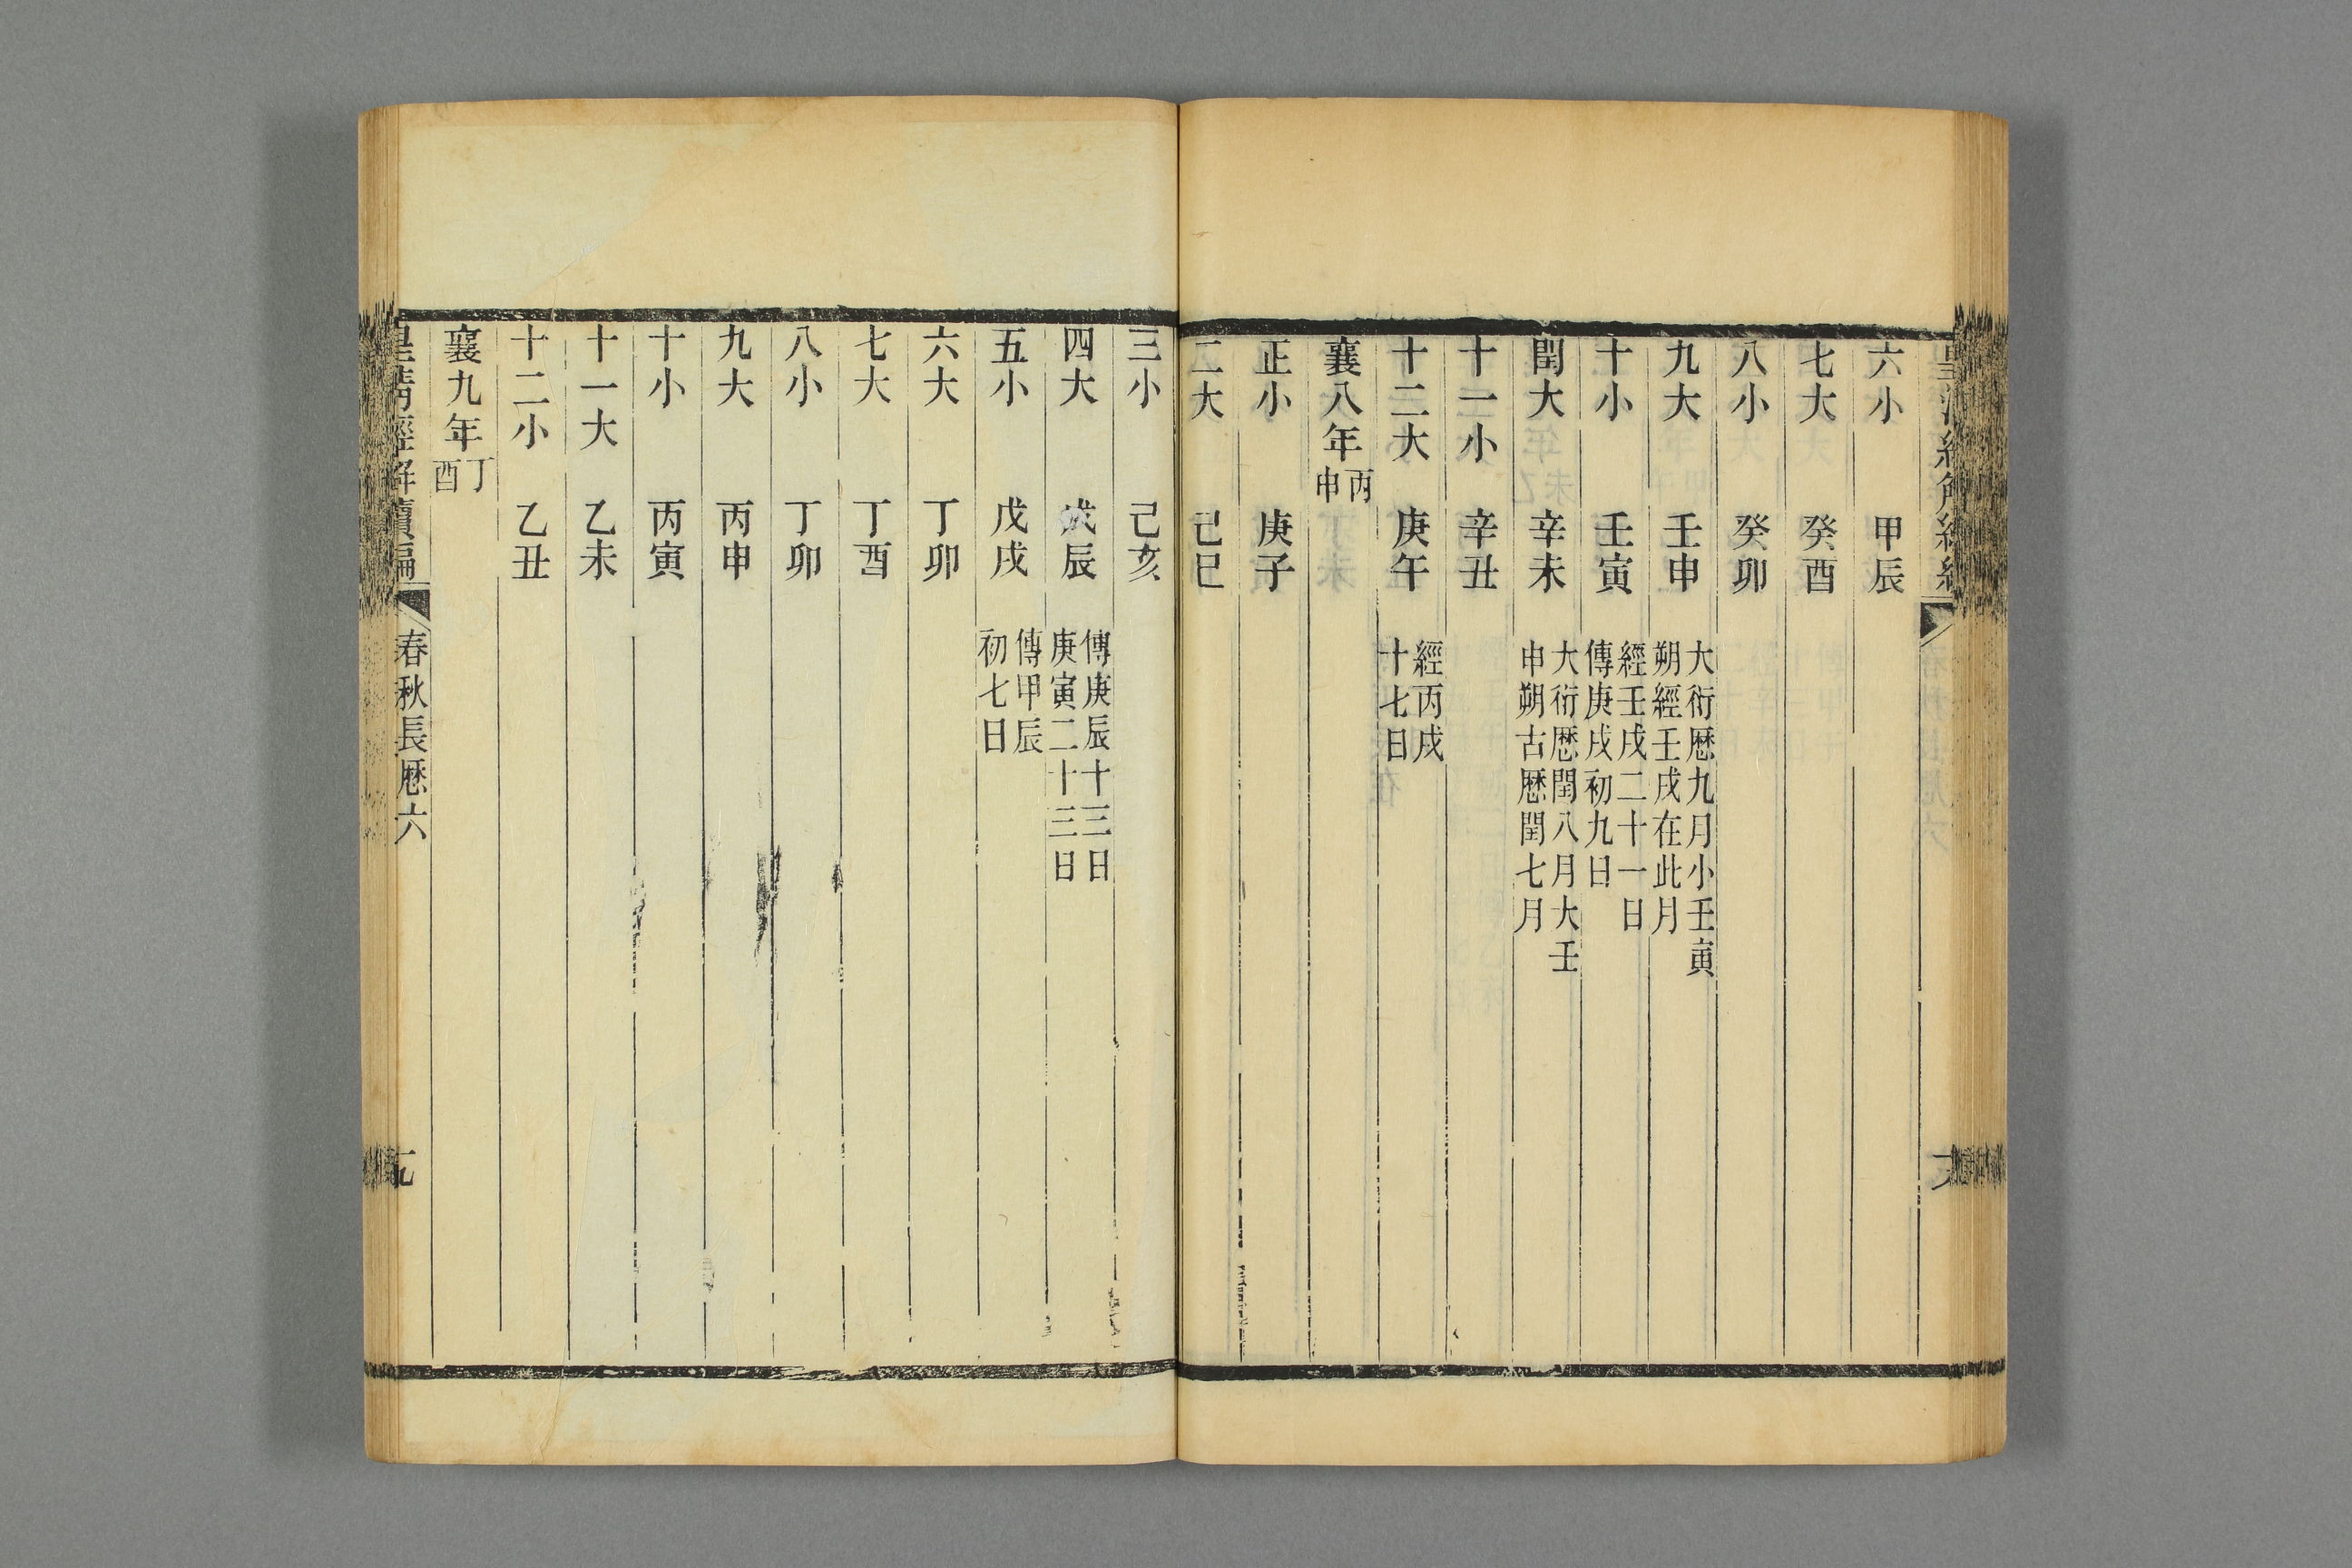 六小 甲辰
七大 癸酉
八小 癸卯
九大 壬申 大衍厯九月小壬寅
朔經壬戌在此月
十小 壬寅 經壬戌二十一日
傳庚戌初九日
閏大 辛未 大衍厯閏八月大壬
申朔古厯閏七月
十一小 辛丑
十二大 庚午 經丙戌
十七日
襄八年 丙申
正小 庚子
二大 己巳
三小 己亥
四大 戊辰 傳庚辰十三日
庚寅二十三日
五小 戊戌 傳甲辰
初七日
六大 丁卯
七大 丁酉
八小 丁卯
九大 丙申
十小 丙寅
十一大 乙未
十二小 乙丑
襄九年 丁酉
皇清經解續編 春秋長厯六